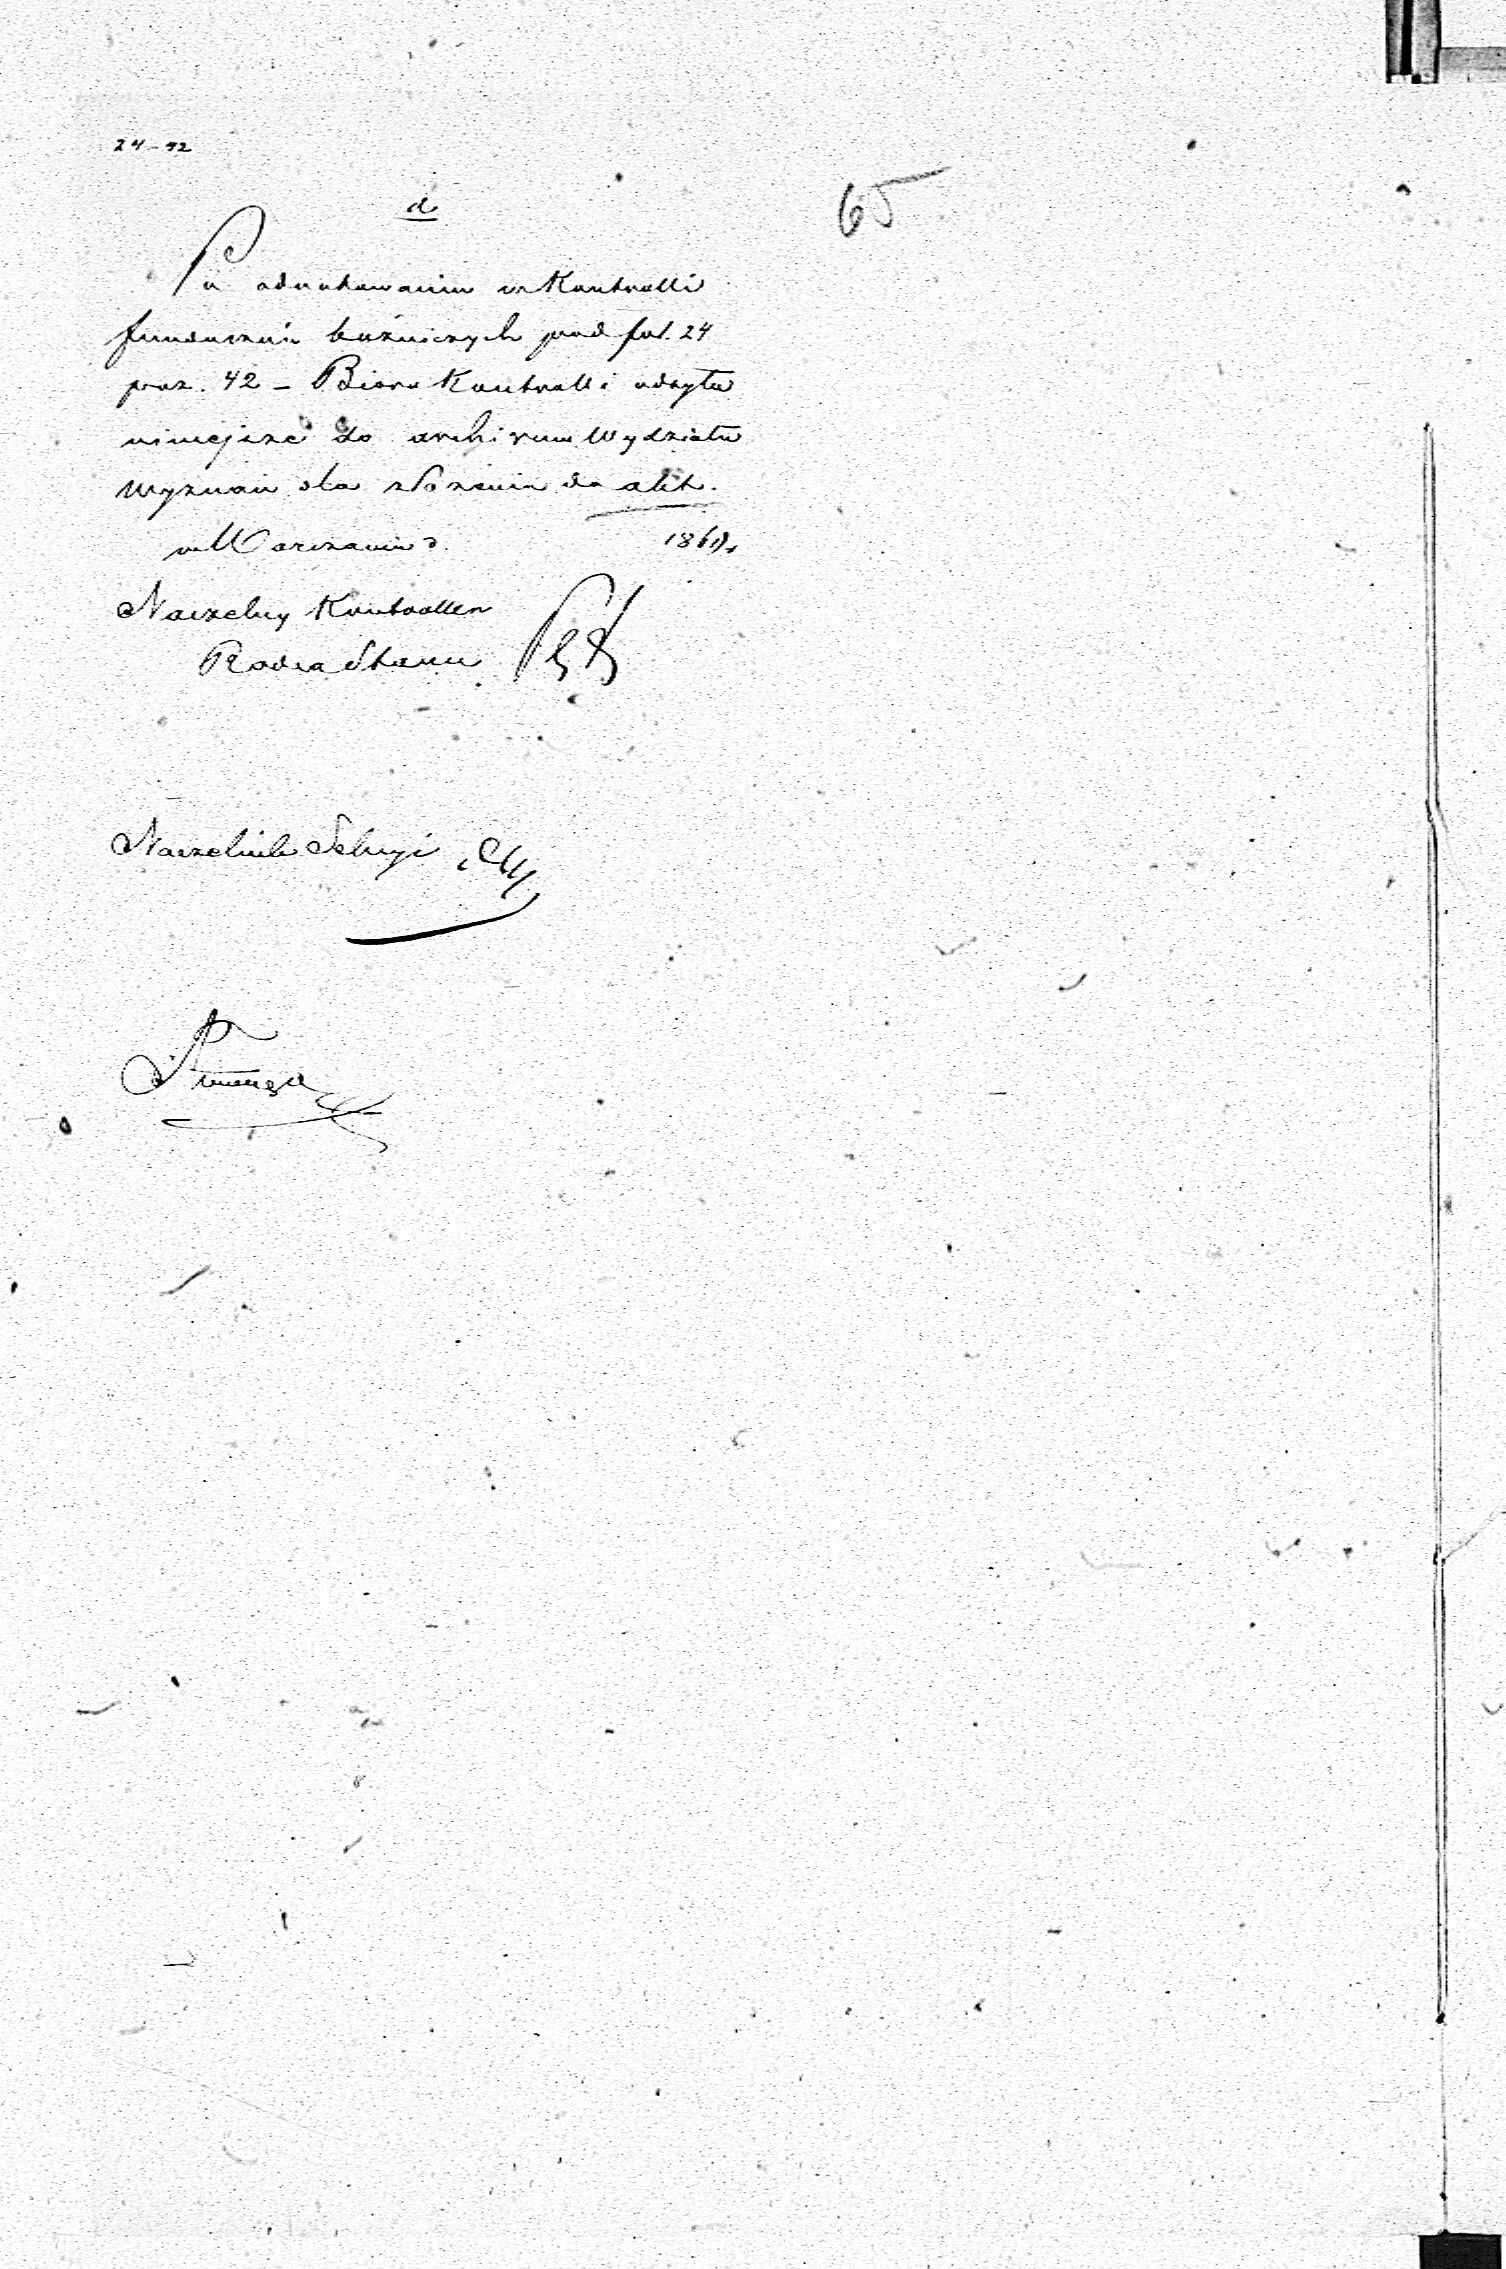 24-42
65
d
Po odnotowaniu w Kontrolli
funduszów bóżniczych pod fol. 24
poz. 42 - Biuro Kontrolli odsyła
niniejsze do archiwum Wydziału
Wyznań dla złożenia do akt.
w Warszawie d. 1861 r.
Naczelny Kontroller
Radca Stanu
Naczelnik Sekcyi